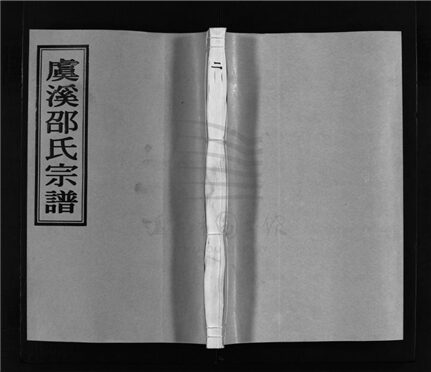 虞溪邵氏宗譜
二